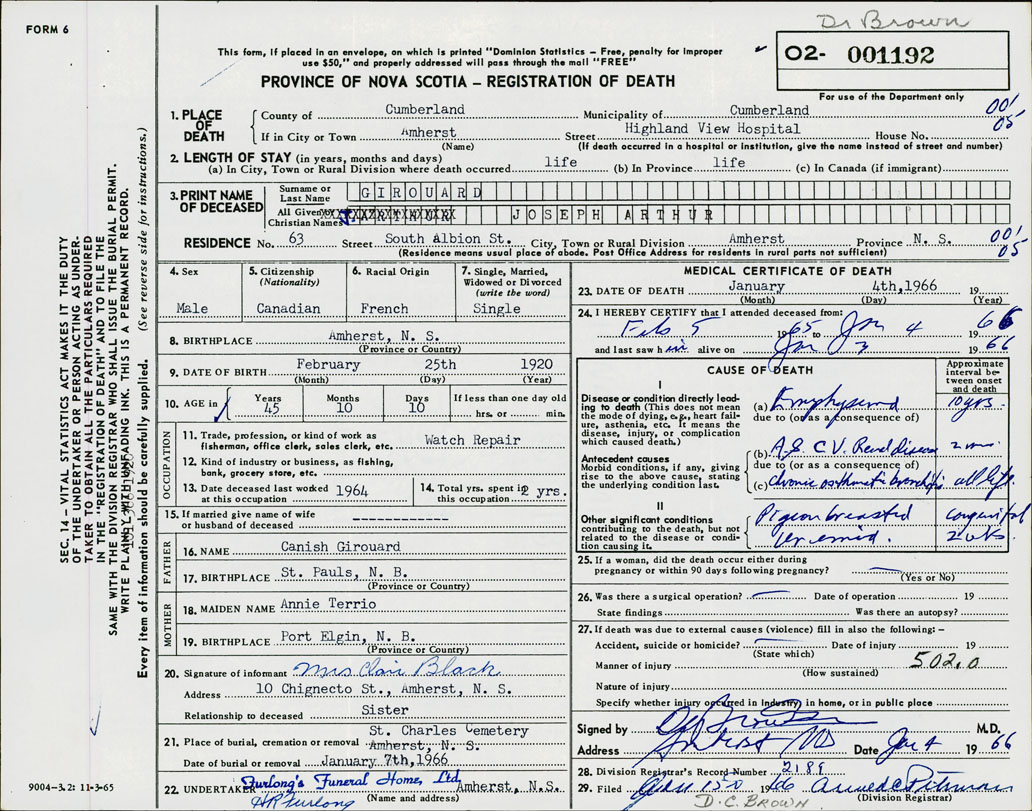 Dr Brown
FORM 6
This form, if placed in an envelope, on which is printed "Dominion Statistics – Free, penalty for improper
use $50," and properly addressed will pass through the mail "FREE"
02- 001192
PROVINCE OF NOVA SCOTIA – REGISTRATION OF DEATH
For use of the Department only
1. PLACE OF DEATH County of Cumberland Municipality of Cumberland 001
If in City or Town Amherst Street Highland View Hospital House No. 05
(Name) (If death occurred in a hospital or institution, give the name instead of street and number)
2. LENGTH OF STAY (in years, months and days)
(a) In City, Town or Rural Division where death occurred life (b) In Province life (c) In Canada (if immigrant)
3. PRINT NAME OF DECEASED Surname or Last Name GIROUARD
All Given or Christian Names JOSEPH ARTHUR
RESIDENCE No. 63 Street South Albion St. City, Town or Rural Division Amherst Province N. S. 001
(Residence means usual place of abode. Post Office Address for residents in rural parts not sufficient) 05
4. Sex Male
5. Citizenship (Nationality) Canadian
6. Racial Origin French
7. Single, Married, Widowed or Divorced (write the word) Single
8. BIRTHPLACE Amherst, N. S.
(Province or Country)
9. DATE OF BIRTH February 25th 1920
(Month) (Day) (Year)
10. AGE in Years 45 Months 10 Days 10 If less than one day old hrs. or min.
OCCUPATION
11. Trade, profession, or kind of work as fisherman, office clerk, sales clerk, etc. Watch Repair
12. Kind of industry or business, as fishing, bank, grocery store, etc.
13. Date deceased last worked at this occupation 1964
14. Total yrs. spent in this occupation 12 yrs.
15. If married give name of wife or husband of deceased -------------
FATHER
16. NAME Canish Girouard
17. BIRTHPLACE St. Pauls, N. B.
(Province or Country)
MOTHER
18. MAIDEN NAME Annie Terrio
19. BIRTHPLACE Port Elgin, N. B.
(Province or Country)
20. Signature of informant Mrs Clair Black
Address 10 Chignecto St., Amherst, N. S.
Relationship to deceased Sister
21. Place of burial, cremation or removal St. Charles Cemetery Amherst, N. S.
Date of burial or removal January 7th, 1966
22. UNDERTAKER Furlong's Funeral Home, Ltd. Amherst, N.S.
(Name and address)
MEDICAL CERTIFICATE OF DEATH
23. DATE OF DEATH January 4th, 1966 19
(Month) (Day) (Year)
24. I HEREBY CERTIFY that I attended deceased from:
Feb 5 1965 to Jan 4 1966
and last saw him alive on Jan 3 1966
CAUSE OF DEATH
Approximate interval between onset and death
I
Disease or condition directly leading to death (This does not mean the mode of dying, e.g., heart failure, asthenia, etc. It means the disease, injury, or complication which caused death.)
(a) Emphysema 10 yrs.
due to (or as a consequence of)
Antecedent causes
Morbid conditions, if any, giving rise to the above cause, stating the underlying condition last.
(b) A.S. C.V. Renal disease
due to (or as a consequence of)
(c) chronic asthmatic bronchitis all life
II
Other significant conditions contributing to the death, but not related to the disease or condition causing it.
Pigeon breasted congenital
uremia. 2 wks.
25. If a woman, did the death occur either during pregnancy or within 90 days following pregnancy?
(Yes or No)
26. Was there a surgical operation? Date of operation 19
State findings Was there an autopsy?
27. If death was due to external causes (violence) fill in also the following:–
Accident, suicide or homicide? Date of injury 19
(State which)
Manner of injury 502.0
(How sustained)
Nature of injury
Specify whether injury occurred in Industry, in home, or in public place
Signed by M.D.
Address Amherst Date Jan 4 1966
28. Division Registrar's Record Number 2189
29. Filed 1966
D.C. BROWN (Division Registrar)
SEC. 14 – VITAL STATISTICS ACT MAKES IT THE DUTY
OF THE UNDERTAKER OR PERSON ACTING AS UNDER-
TAKER TO OBTAIN ALL THE PARTICULARS REQUIRED
IN THE "REGISTRATION OF DEATH" AND TO FILE THE
SAME WITH THE DIVISION REGISTRAR WHO SHALL ISSUE THE BURIAL PERMIT.
WRITE PLAINLY WITH UNFADING INK. THIS IS A PERMANENT RECORD.
Every item of information should be carefully supplied. (See reverse side for instructions.)
9004-3.2: 11-3-65